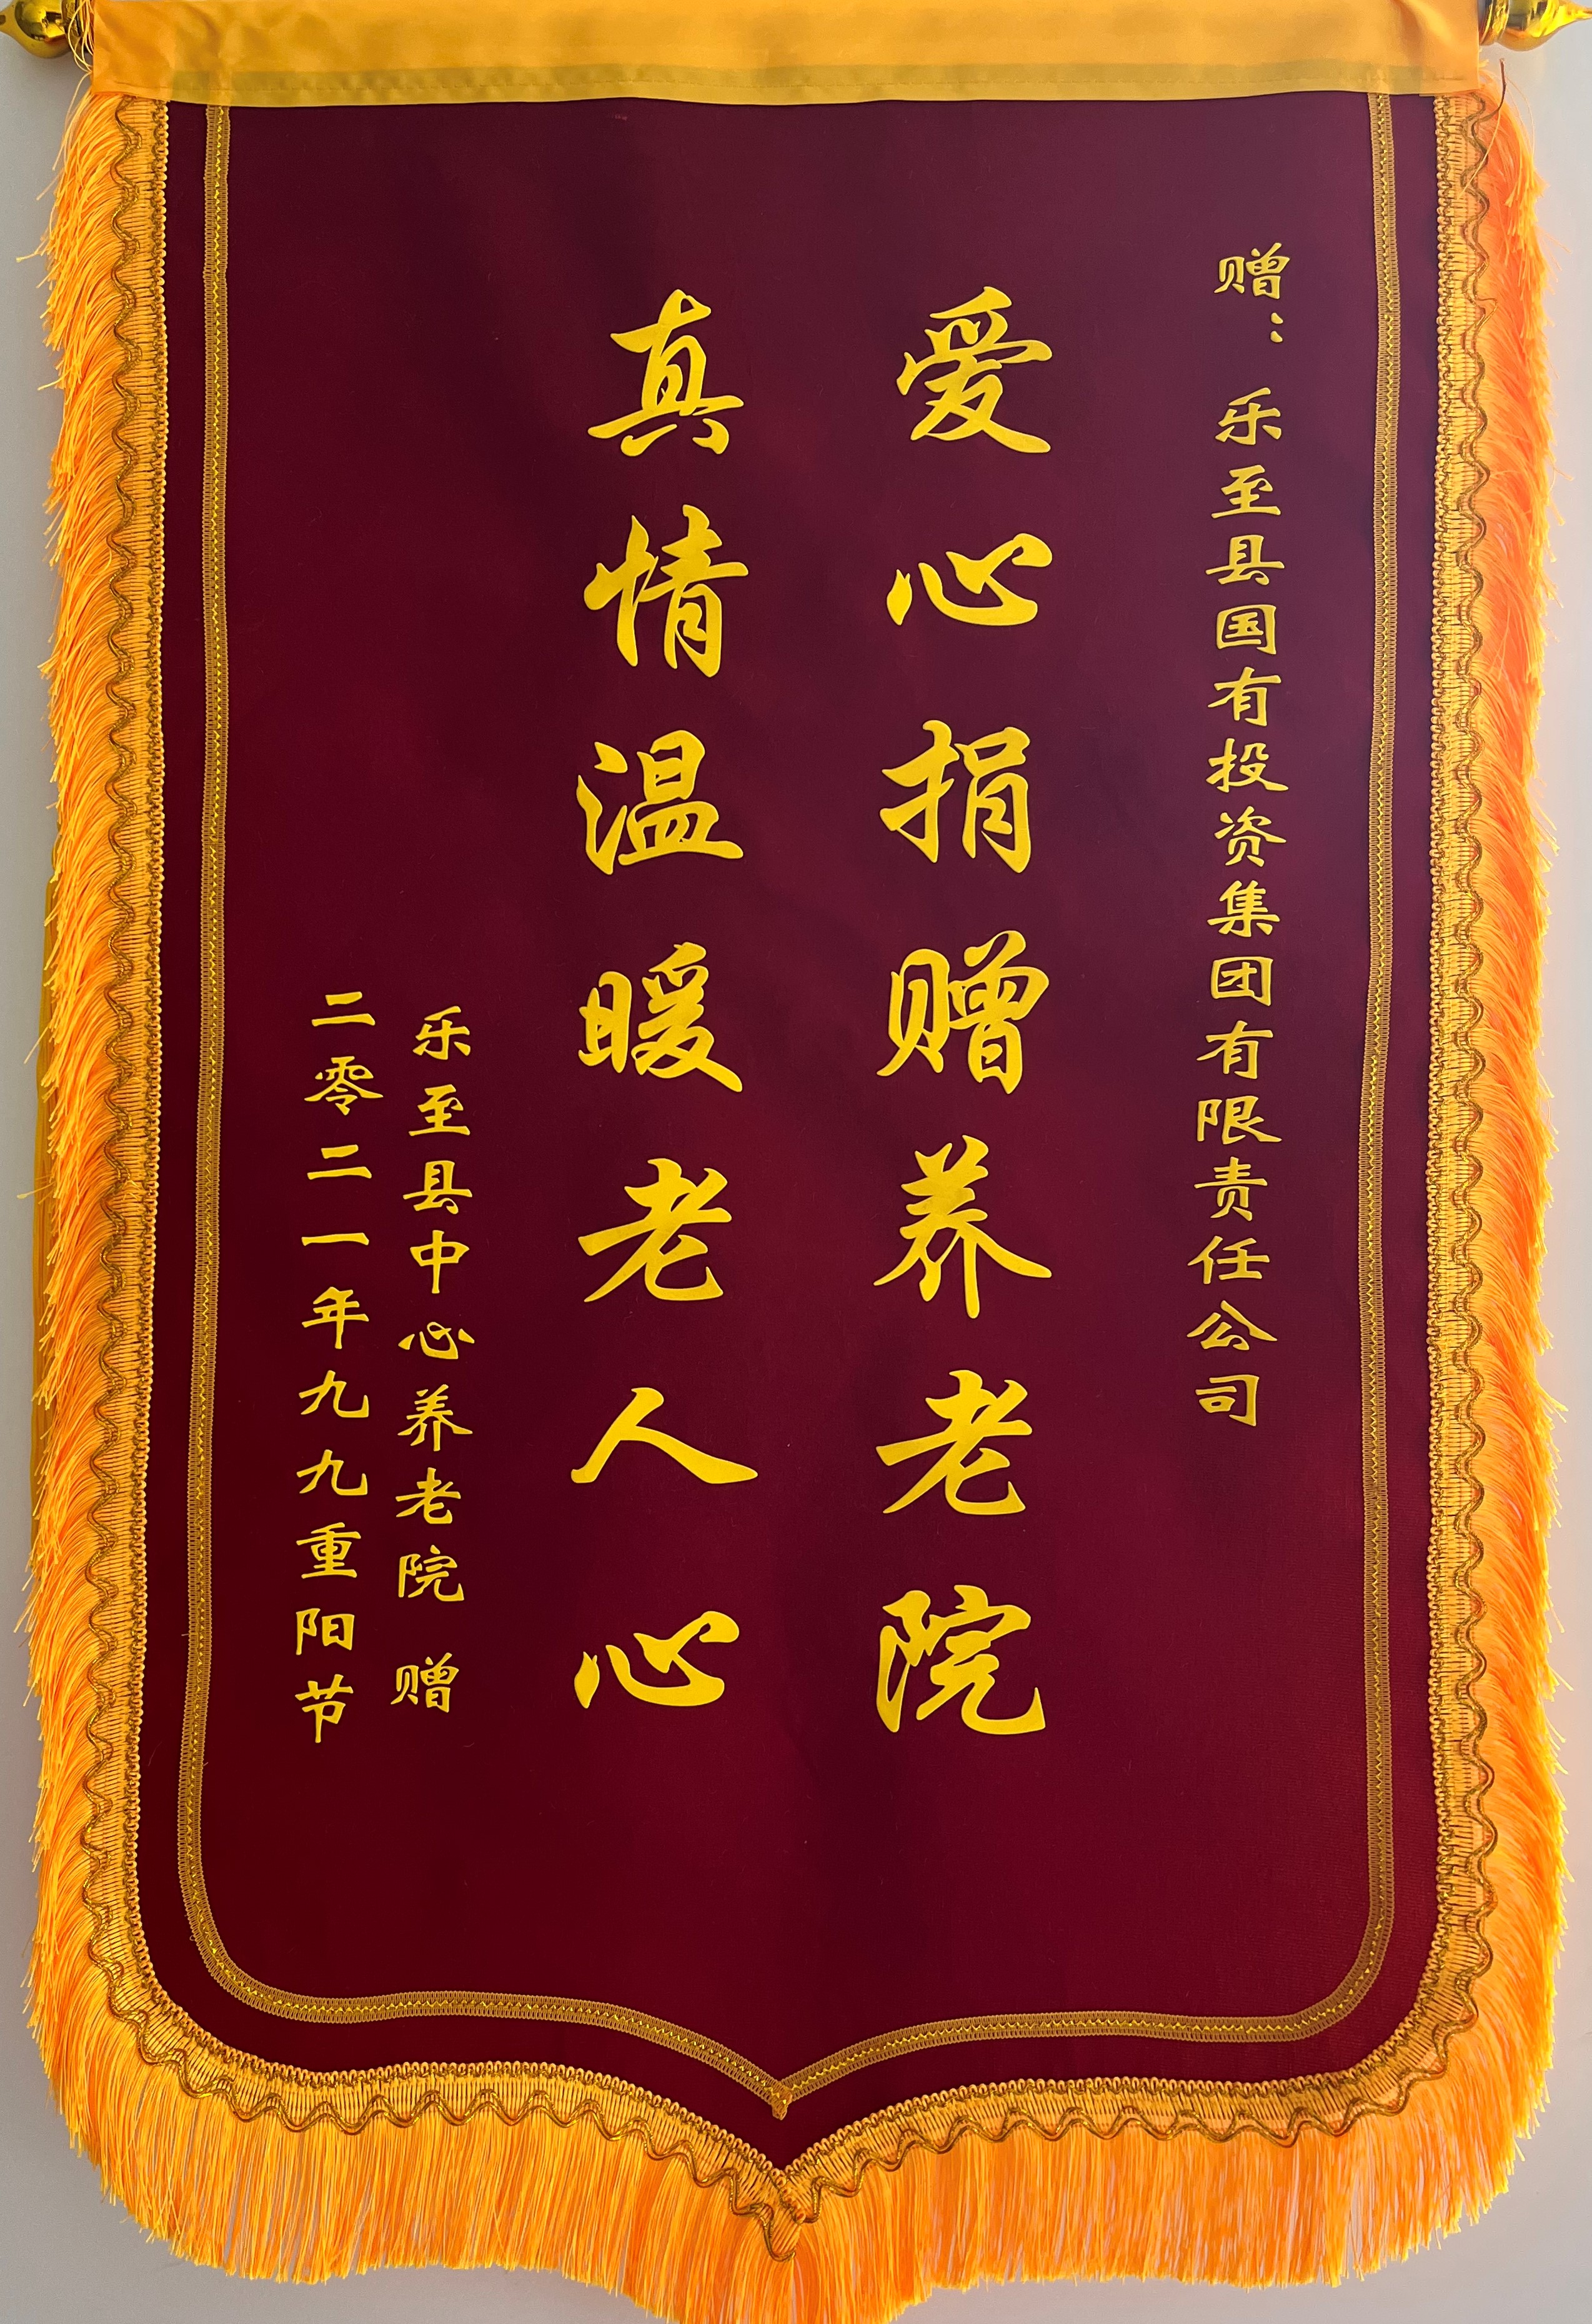 赠：乐至县国有投资集团有限责任公司
爱心捐赠养老院
真情温暖老人心
乐至县中心养老院 赠
二零二一年九九重阳节